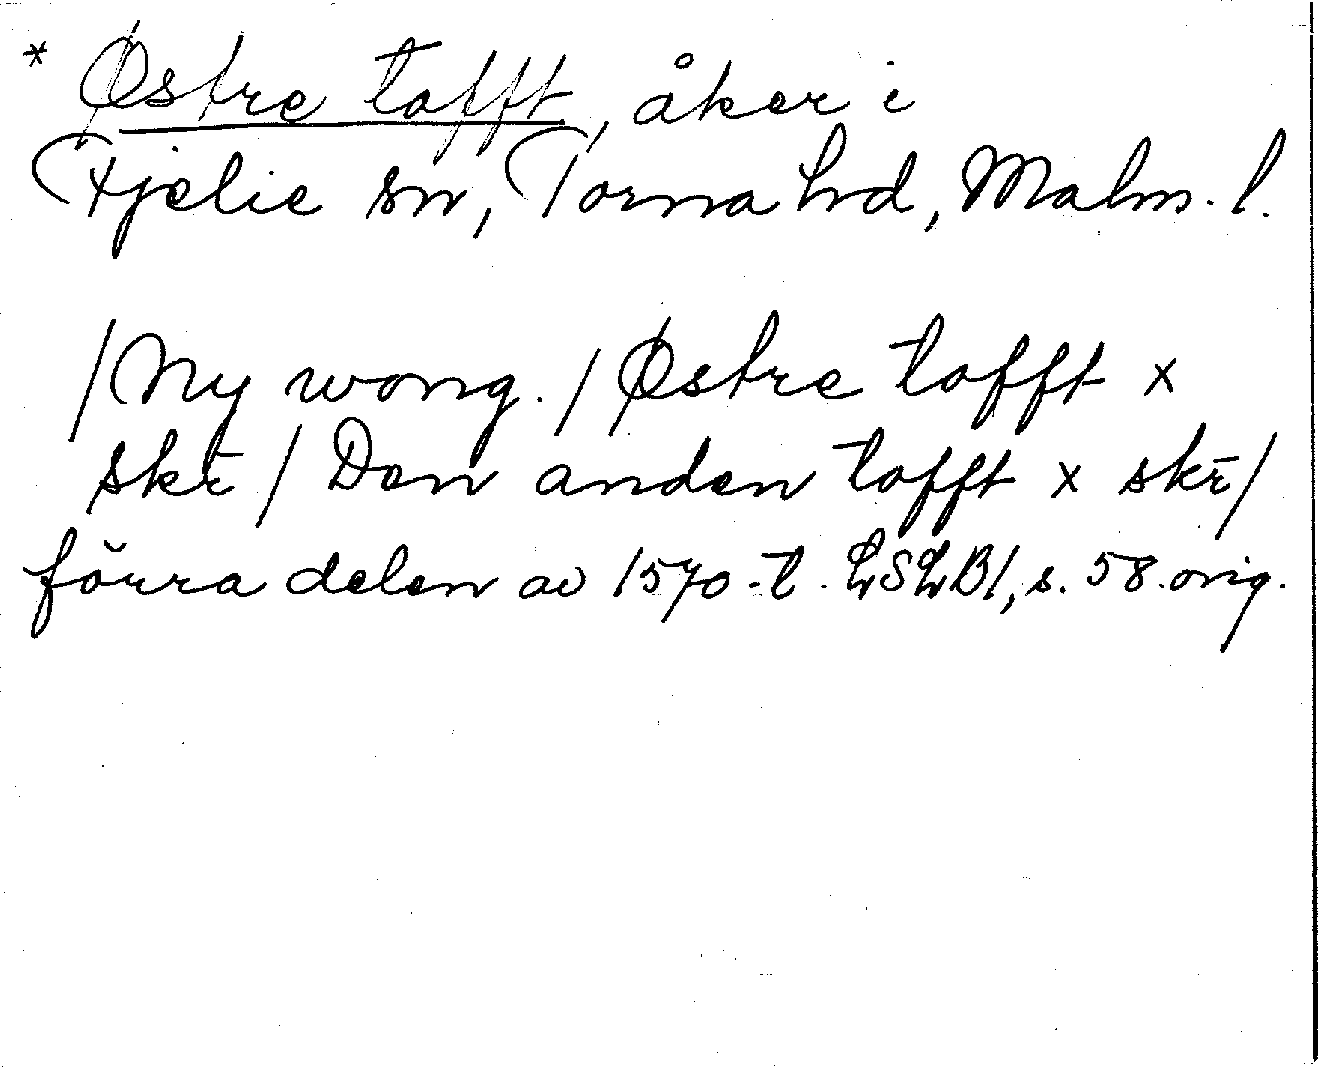 * Østre tofft, åker i
Fjelie sn, Torna hd, Malm. l.
/Ny wong./Østre tofft x
skr̄/Den anden tofft x skr̄/
förra delen av 1570-t. LSLB1, s. 58 orig.